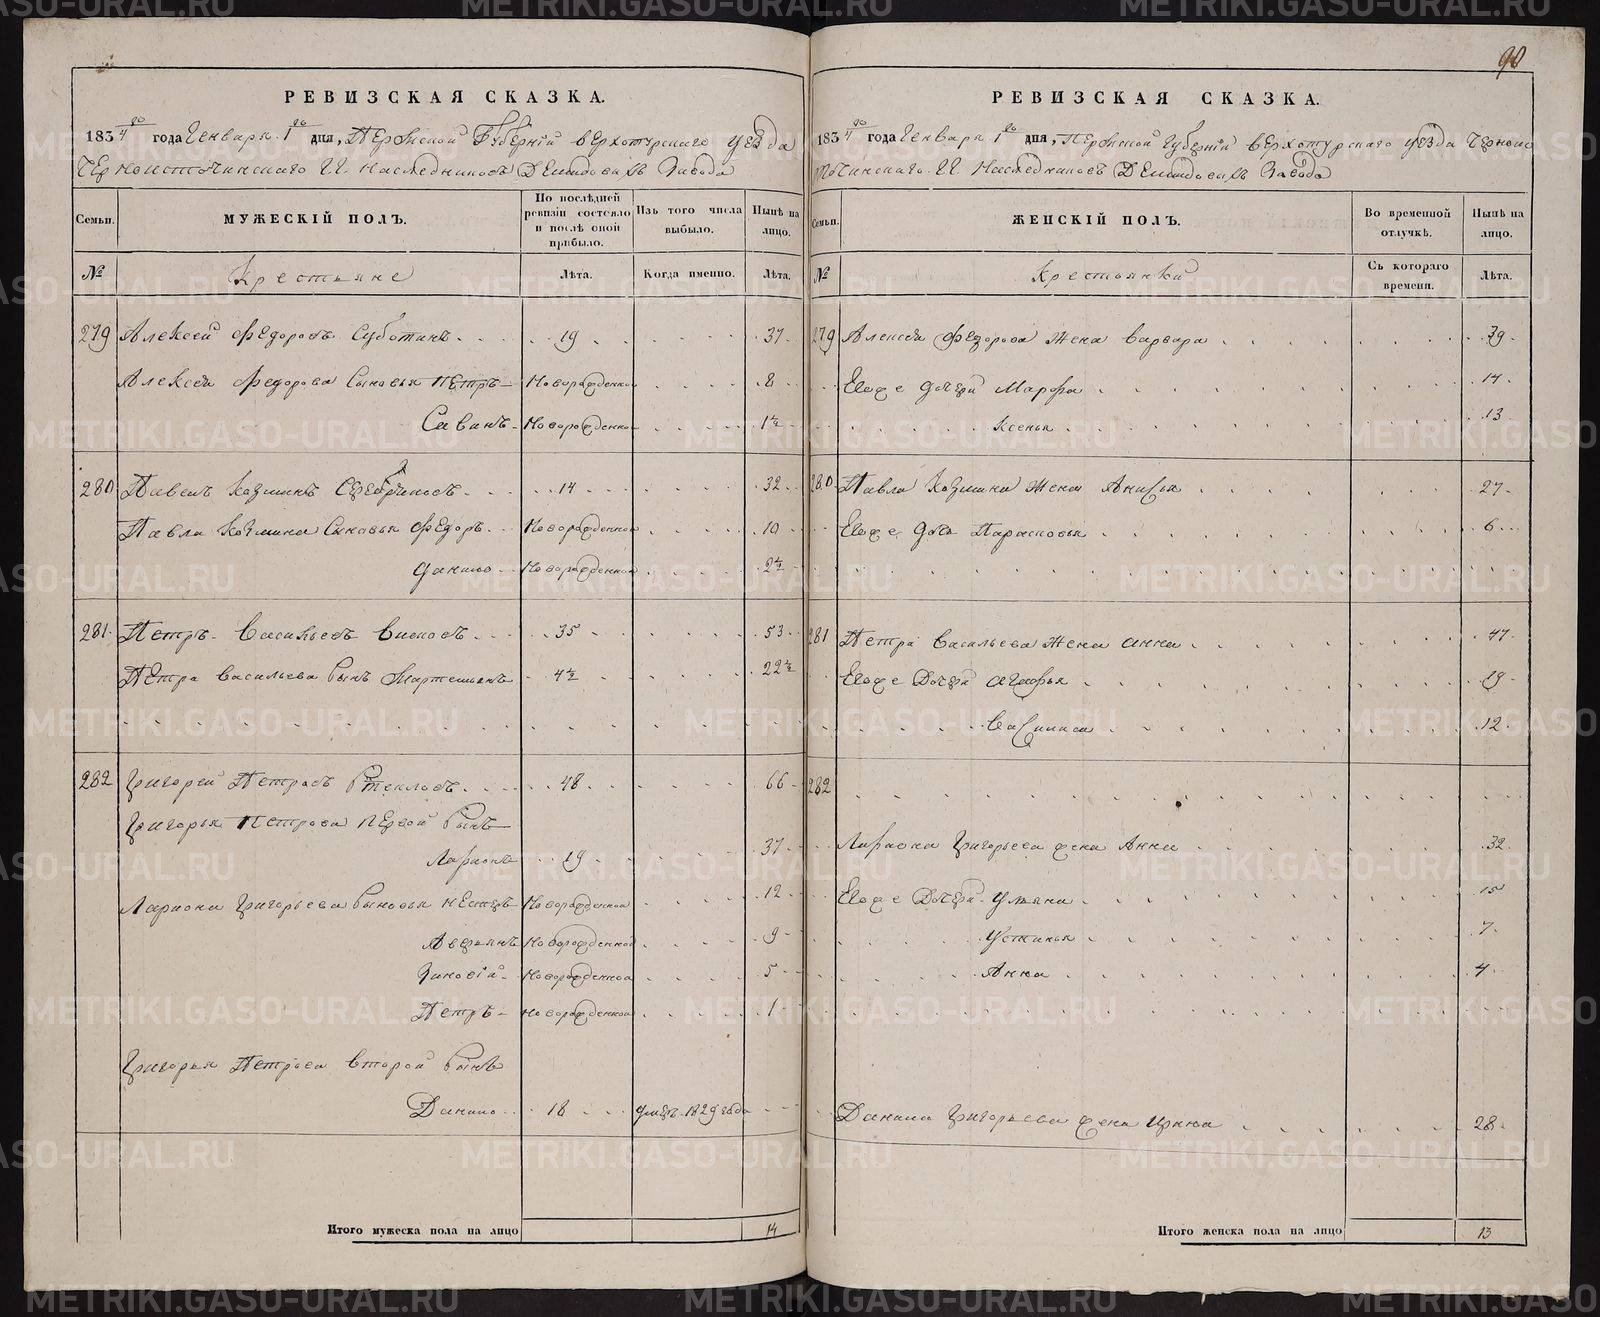 90
РЕВИЗСКАЯ СКАЗКА.
1834го года Генваря 1го дня, Пермской Губернiй верхотурского уезда
Черноисточинского ГГ. наследниковъ Демидовыхъ Завода
Семьи. МУЖЕСКIЙ ПОЛЪ. По послѣдней ревизiи состояло и послѣ оной прибыло. Изъ того числа выбыло. Нынѣ на лицо.
№ Крестьяне Лѣта. Когда именно. Лѣта.
279 Алексей Федоровъ Суботинъ 19 37
Алексея Федорова Сыновья Петръ Новорожденной 8
Саванъ Новорожденной 1½
280 Павелъ Козминъ Серебряковъ 14 32
Павла Козмина Сыновья Федоръ Новорожденной 10
Данило Новорожденной 2½
281 Петръ Васильевъ 35 53
Петра Васильева Сынъ Мартемьянъ 4½ 22½
282 Григорей Петровъ 48 66
Григорья Петрова первой Сынъ
Ларионъ 19 37
Лариона Григорьева Сыновья Нестеръ Новорожденной 12
Аверьянъ Новорожденной 9
Зиновiй Новорожденной 5
Петръ Новорожденной 1
Григорья Петрова второй Сынъ
Данило 18 умеръ 1829 года
Итого мужеска пола на лицо 14
РЕВИЗСКАЯ СКАЗКА.
1834го года Генваря 1го дня, Пермской Губернiй верхотурского уезда Черноис
точинского ГГ. Наследниковъ Демидовыхъ Завода
Семьи. ЖЕНСКIЙ ПОЛЪ. Во временной отлучкѣ. Нынѣ на лицо.
№ Крестьянки Съ котораго времени. Лѣта.
279 Алексея Федорова Жена Варвара 39
Егоже дочери Марфа 14
Ксенья 13
280 Павла Козмина Жена Анисья 27
Егоже дочь Парасковья 6
281 Петра Васильева Жена Анна 47
Егоже Дочери Агафья 19
Василиса 12
282
Лариона Григорьева жена Анна 32
Егоже Дочери Ульяна 15
Устинья 7
Анна 4
Данила Григорьева жена Ирина 28
Итого женска пола на лицо 13
METRIKI.GASO-URAL.RU